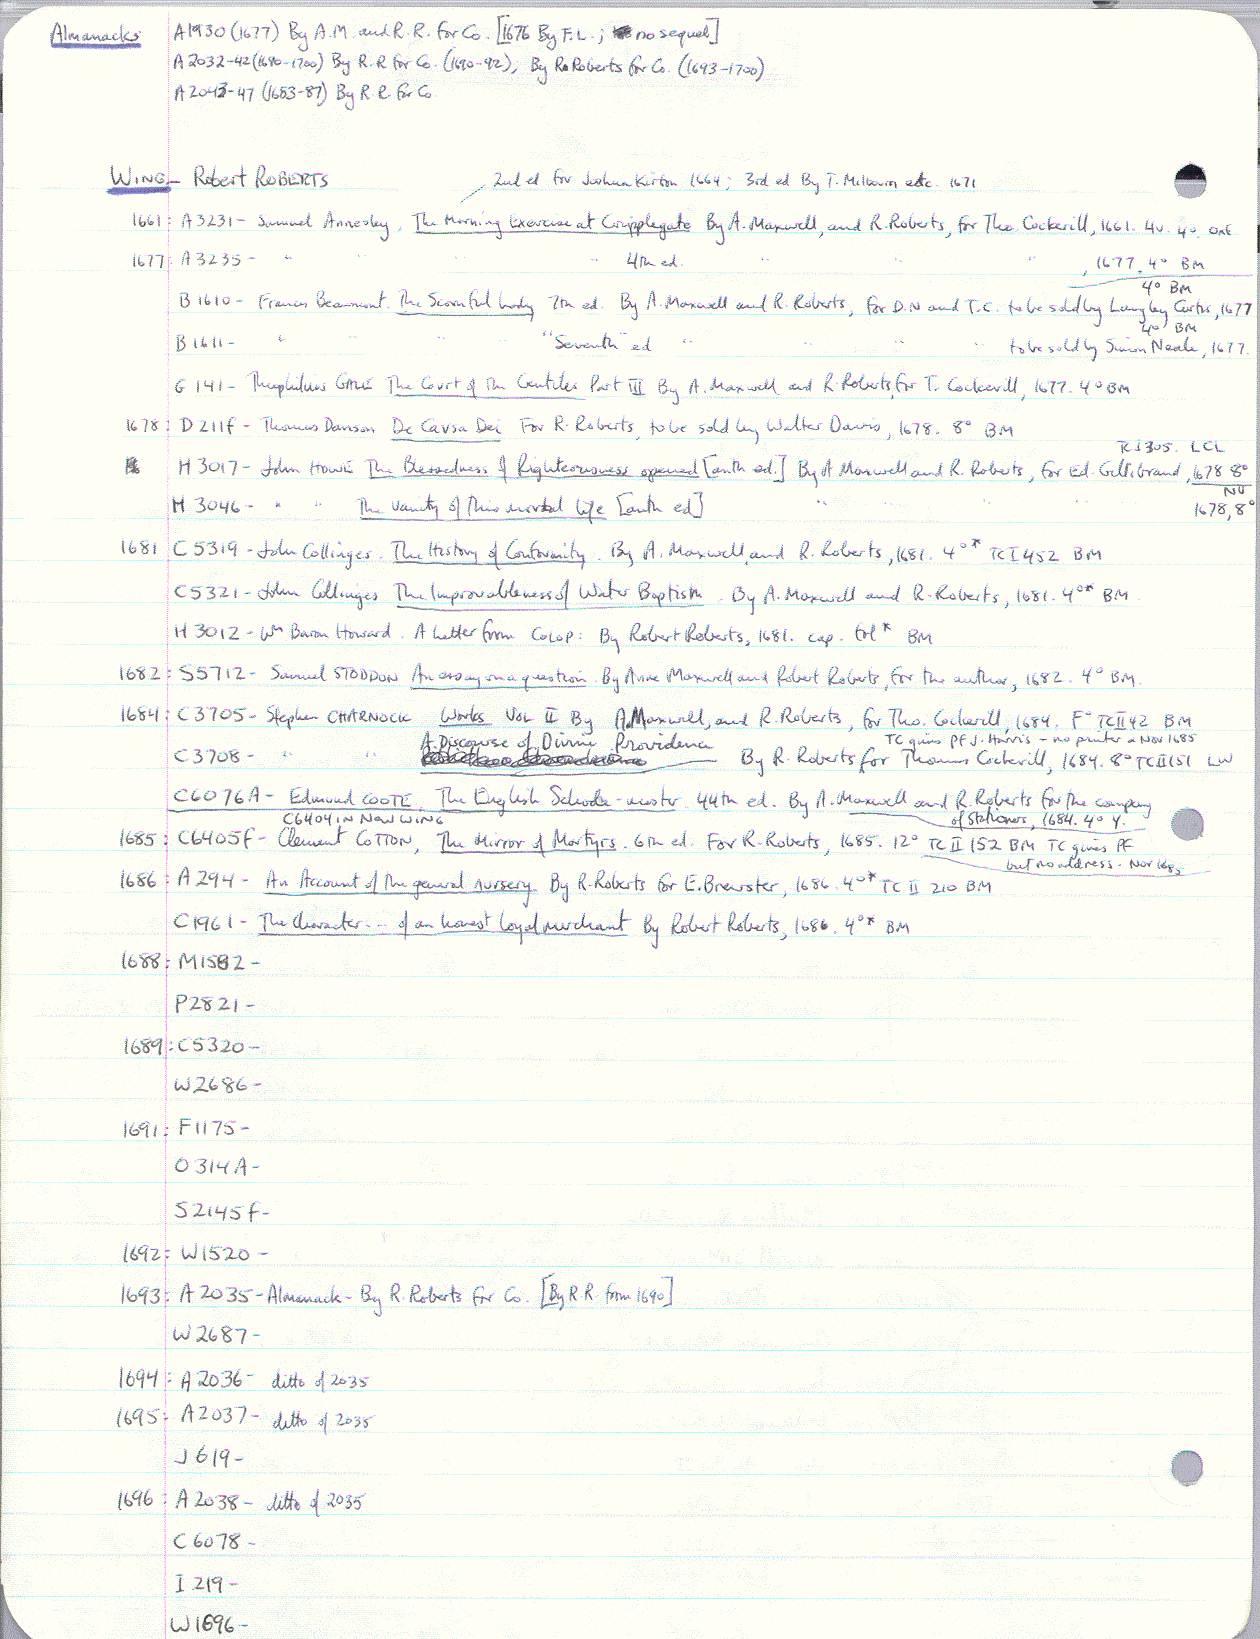 Almanacks A1930 (1677) By A.M. and R.R. for Co. [1676 By F.L.; no sequel]
A2032-42 (1690-1700) By R.R for Co. (1690-92), By Ro Roberts for Co. (1693-1700)
A2043-47 (1683-87) By R.R. for Co
WING - Robert ROBERTS 2nd ed for Joshua Kirton 1664; 3rd ed By T. Milbourn etc. 1671
1661: A3231- Samuel Annesley. The Morning Exercise at Cripplegate By A. Maxwell, and R. Roberts, for Tho. Cockerill, 1661. 4º
1677: A3235- " " " 4th ed. " " " , 1677. 4º BM
4º BM
B1610- Francis Beaumont. The Scornful lady 7th ed. By A. Maxwell and R. Roberts, for D.N and T.C. to be sold by Langley Curtis, 1677
4º BM
B1611- " " " "Seventh" ed " " " to be sold by Simon Neale, 1677.
G141- Theophilus GALE The Court of the Gentiles Part III By A. Maxwell and R. Roberts, for T. Cockerill, 1677. 4º BM
1678: D211f- Thomas Danson De Causa Dei For R. Roberts, to be sold by Walter Davis, 1678. 8º BM
TC I 305. LCL
H3017- John HOWE The Blessedness of Righteousness opened [anth ed.] By A Maxwell and R. Roberts, for Ed. Gellibrand, 1678 8º
NU
H3046- " " The Vanity of this mortal life [anth ed] " " " 1678, 8º
1681 C5319- John Collinges. The History of Conformity. By A. Maxwell, and R. Roberts, 1681. 4º* TC I 452 BM
C5321- John Collinges The Improvableness of Water Baptism. By A. Maxwell and R. Roberts, 1681. 4º* BM.
H3012- Wm Baron Howard. A letter from COLOP: By Robert Roberts, 1681. cap. fol* BM
1682: S5712- Samuel STODDON An essay on a question. By Anne Maxwell and Robert Roberts, for the author, 1682. 4º BM.
1684: C3705- Stephen CHARNOCK Works Vol II By A. Maxwell, and R. Roberts, for Tho. Cockerill, 1684. Fº TC II 42 BM
A Discourse of Divine Providence TC gives PF J. Harris - no printer a Nov 1685
C3708- " " By R. Roberts for Thomas Cockerill, 1684. 8º TC II 151 LW
C6076A- Edmund COOTE, The English Schoole-master 44th ed. By A. Maxwell and R. Roberts for the company
C6404 IN NEW WING of Stationers, 1684. 4º Y.
1685: C6405f- Clement COTTON, The Mirror of Martyrs. 6th ed. For R. Roberts, 1685. 12º TC II 152 BM TC gives PF
but no address. Nov 1685
1686: A294- An Account of the general nursery By R. Roberts for E. Brewster, 1686. 4º* TC II 210 BM
C1961- The Character ... of an honest loyal merchant By Robert Roberts, 1686. 4º* BM
1688: M1582-
P2821-
1689: C5320-
W2686-
1691: F1175-
O314A-
S2145f-
1692: W1520-
1693: A2035- Almanack- By R. Roberts for Co. [By R R. from 1690]
W2687-
1694: A2036- ditto of 2035
1695: A2037- ditto of 2035
J619-
1696: A2038- ditto of 2035
C6078-
I219-
W1696-